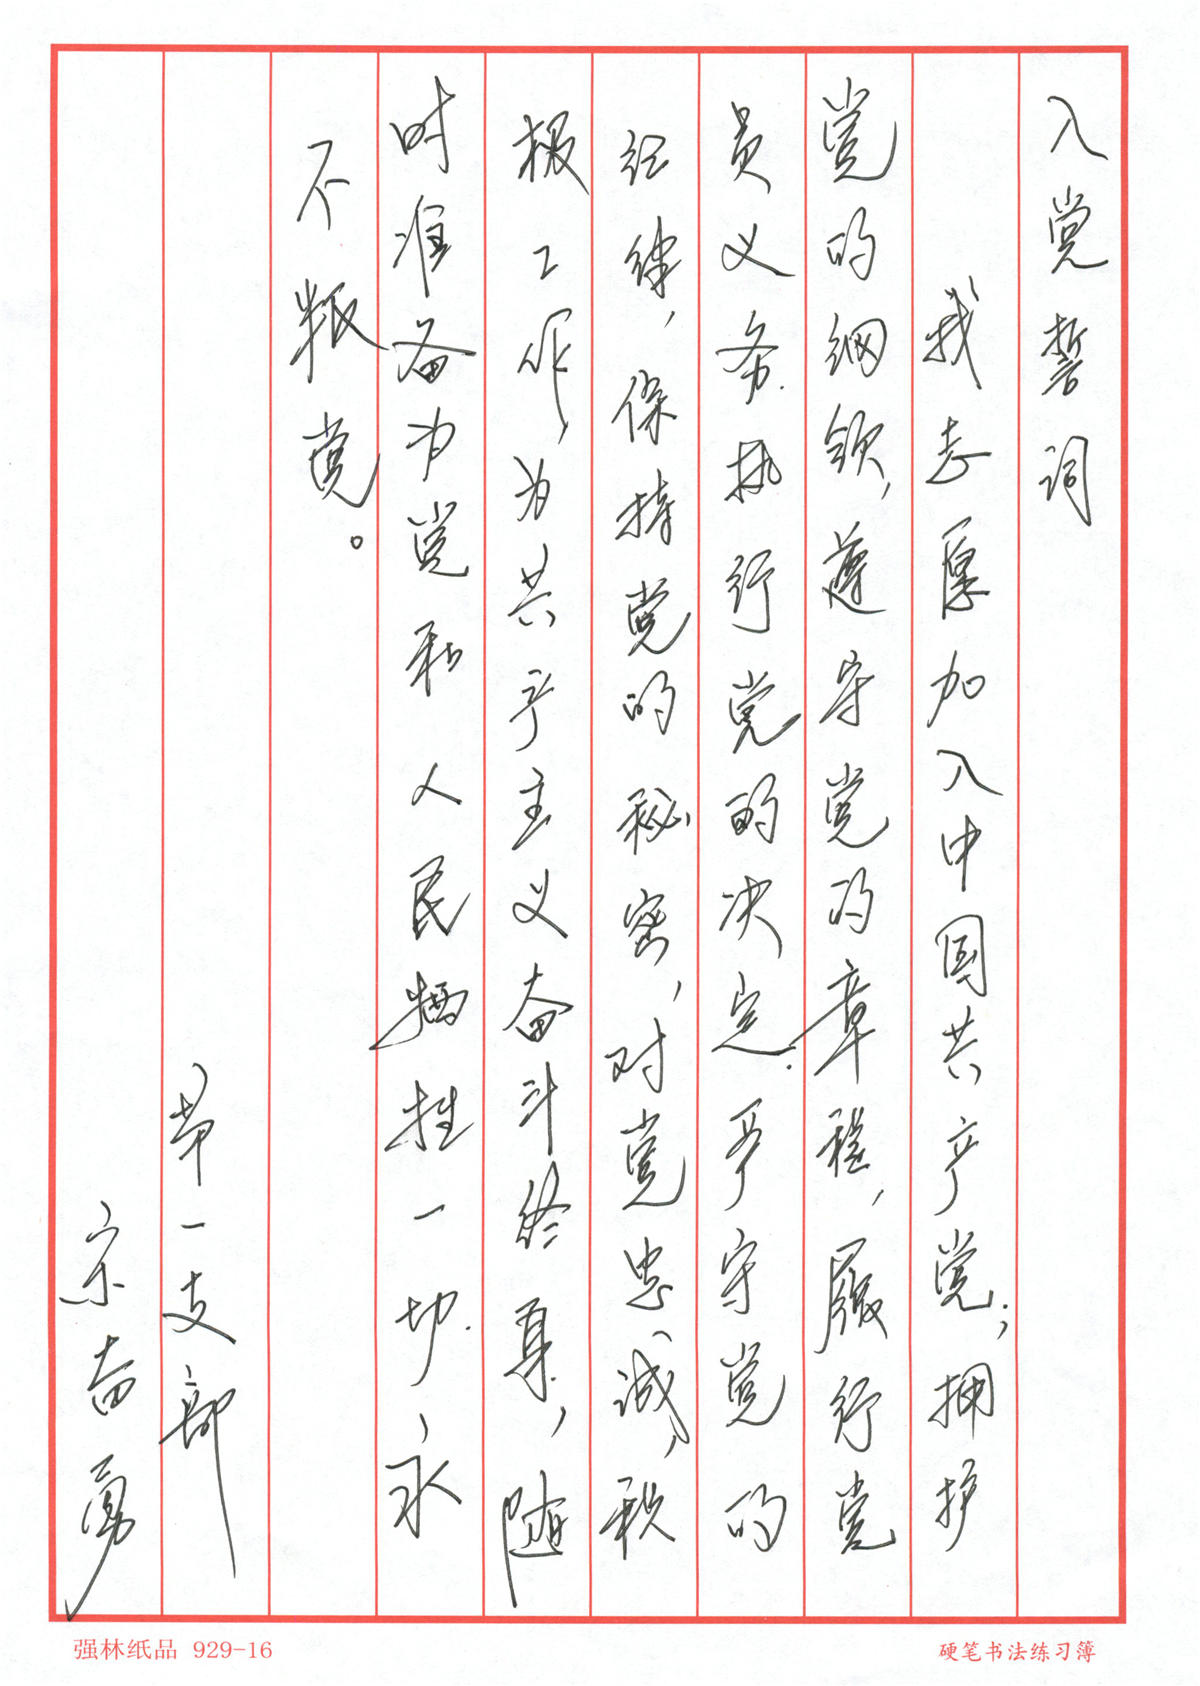 入党誓词
我志愿加入中国共产党，拥护
党的纲领，遵守党的章程，履行党
员义务.执行党的决定.严守党的
纪律，保持党的秘密，对党忠诚，积
极工作，为共产主义奋斗终身，随
时准备为党和人民牺牲一切、永
不叛党。
第一支部
宋奋勇
强林纸品 929-16
硬笔书法练习簿